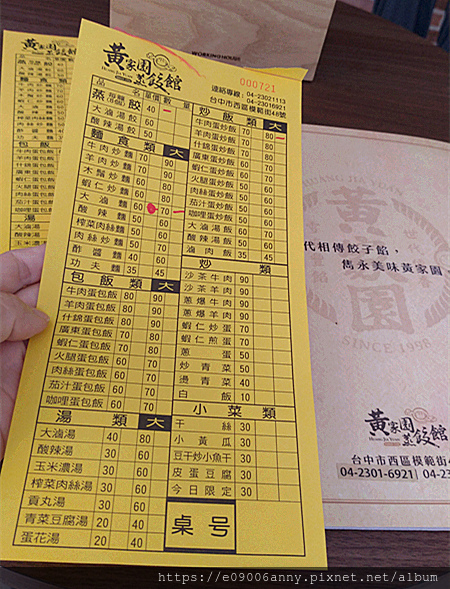 黃家園
蒸餃館
000721
連絡專線：04-23021113
04-23016921
台中市西區模範街48號
品名 單價 數量
蒸餃 (8個) 40
大滷湯餃 60
酸辣湯餃 60
麵食類 大
牛肉炒麵 70 90
羊肉炒麵 70 90
木鬚炒麵 60 80
蝦仁炒麵 60 80
大滷麵 60 70
酸辣麵 60 70
榨菜肉絲麵
肉絲炒麵
炸醬麵
功夫麵 35 45
包飯類 大
牛肉蛋包飯 80 90
羊肉蛋包飯 80 90
什錦蛋包飯 70 80
廣東蛋包飯 70 80
蝦仁蛋包飯 60
火腿蛋包飯 60
肉絲蛋包飯 60
茄汁蛋包飯 60
咖哩蛋包飯 60
湯類 大
大滷湯 40 80
酸辣湯 30 60
玉米濃湯 30 60
榨菜肉絲湯 30 60
貢丸湯 20 40
青菜豆腐湯 20 40
蛋花湯 20 40
炒飯類 大
牛肉蛋炒飯 70 80
羊肉蛋炒飯 70 80
什錦蛋炒飯 60 70
廣東蛋炒飯 60 70
蝦仁蛋炒飯
火腿蛋炒飯
肉絲蛋炒飯
茄汁蛋炒飯
咖哩蛋炒飯
大滷飯
酸辣飯
滷肉飯 35 45
炒類
沙茶牛肉 90
沙茶羊肉 90
蔥爆牛肉 90
蔥爆羊肉 90
蝦仁炒蛋 90
蝦仁煎蛋 90
蔥蛋 50
炒青菜 50
燙青菜 40
白飯 10
小菜類
干絲 30
小黃瓜 30
豆干炒小魚干 30
皮蛋豆腐 30
今日限定 30
桌号
黃家園
代相傳餃子餡，
雋永美味黃家園，
SINCE 1998
黃家園
蒸餃館
台中市西區模範街4
04-2301-6921
https://e09006anny.pixnet.net/album